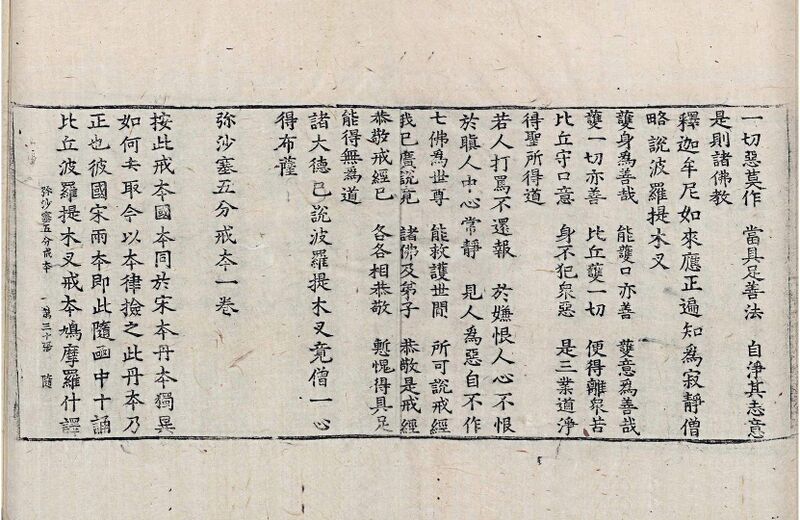 一切惡莫作　當具足善法　自淨其志意
是則諸佛教
釋迦牟尼如來應正遍知為寂靜僧
略說波羅提木叉
護身為善哉　能護口亦善　護意為善哉
護一切亦善　比丘護一切　便得離衆苦
比丘守口意　身不犯衆惡　是三業道淨
得聖所得道
若人打罵不還報　於嫌恨人心不恨
於瞋人中心常靜　見人為惡自不作
七佛為世尊　能救護世間　所可說戒經
我已廣說竟　諸佛及弟子　恭敬是戒經
恭敬戒經已　各各相恭敬　慙愧得具足
能得無為道
諸大德已說波羅提木叉竟僧一心
得布薩
弥沙塞五分戒本一卷
按此戒本國本同於宋本丹本獨異
如何去取今以本律撿之此丹本乃
正也彼國宋兩本即此隨函中十誦
比丘波羅提木叉戒本鳩摩羅什譯
弥沙塞五分戒本　第三十張　隨